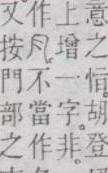 意之 胡登
上增一字。非。
作凡。不當作
又按門部之